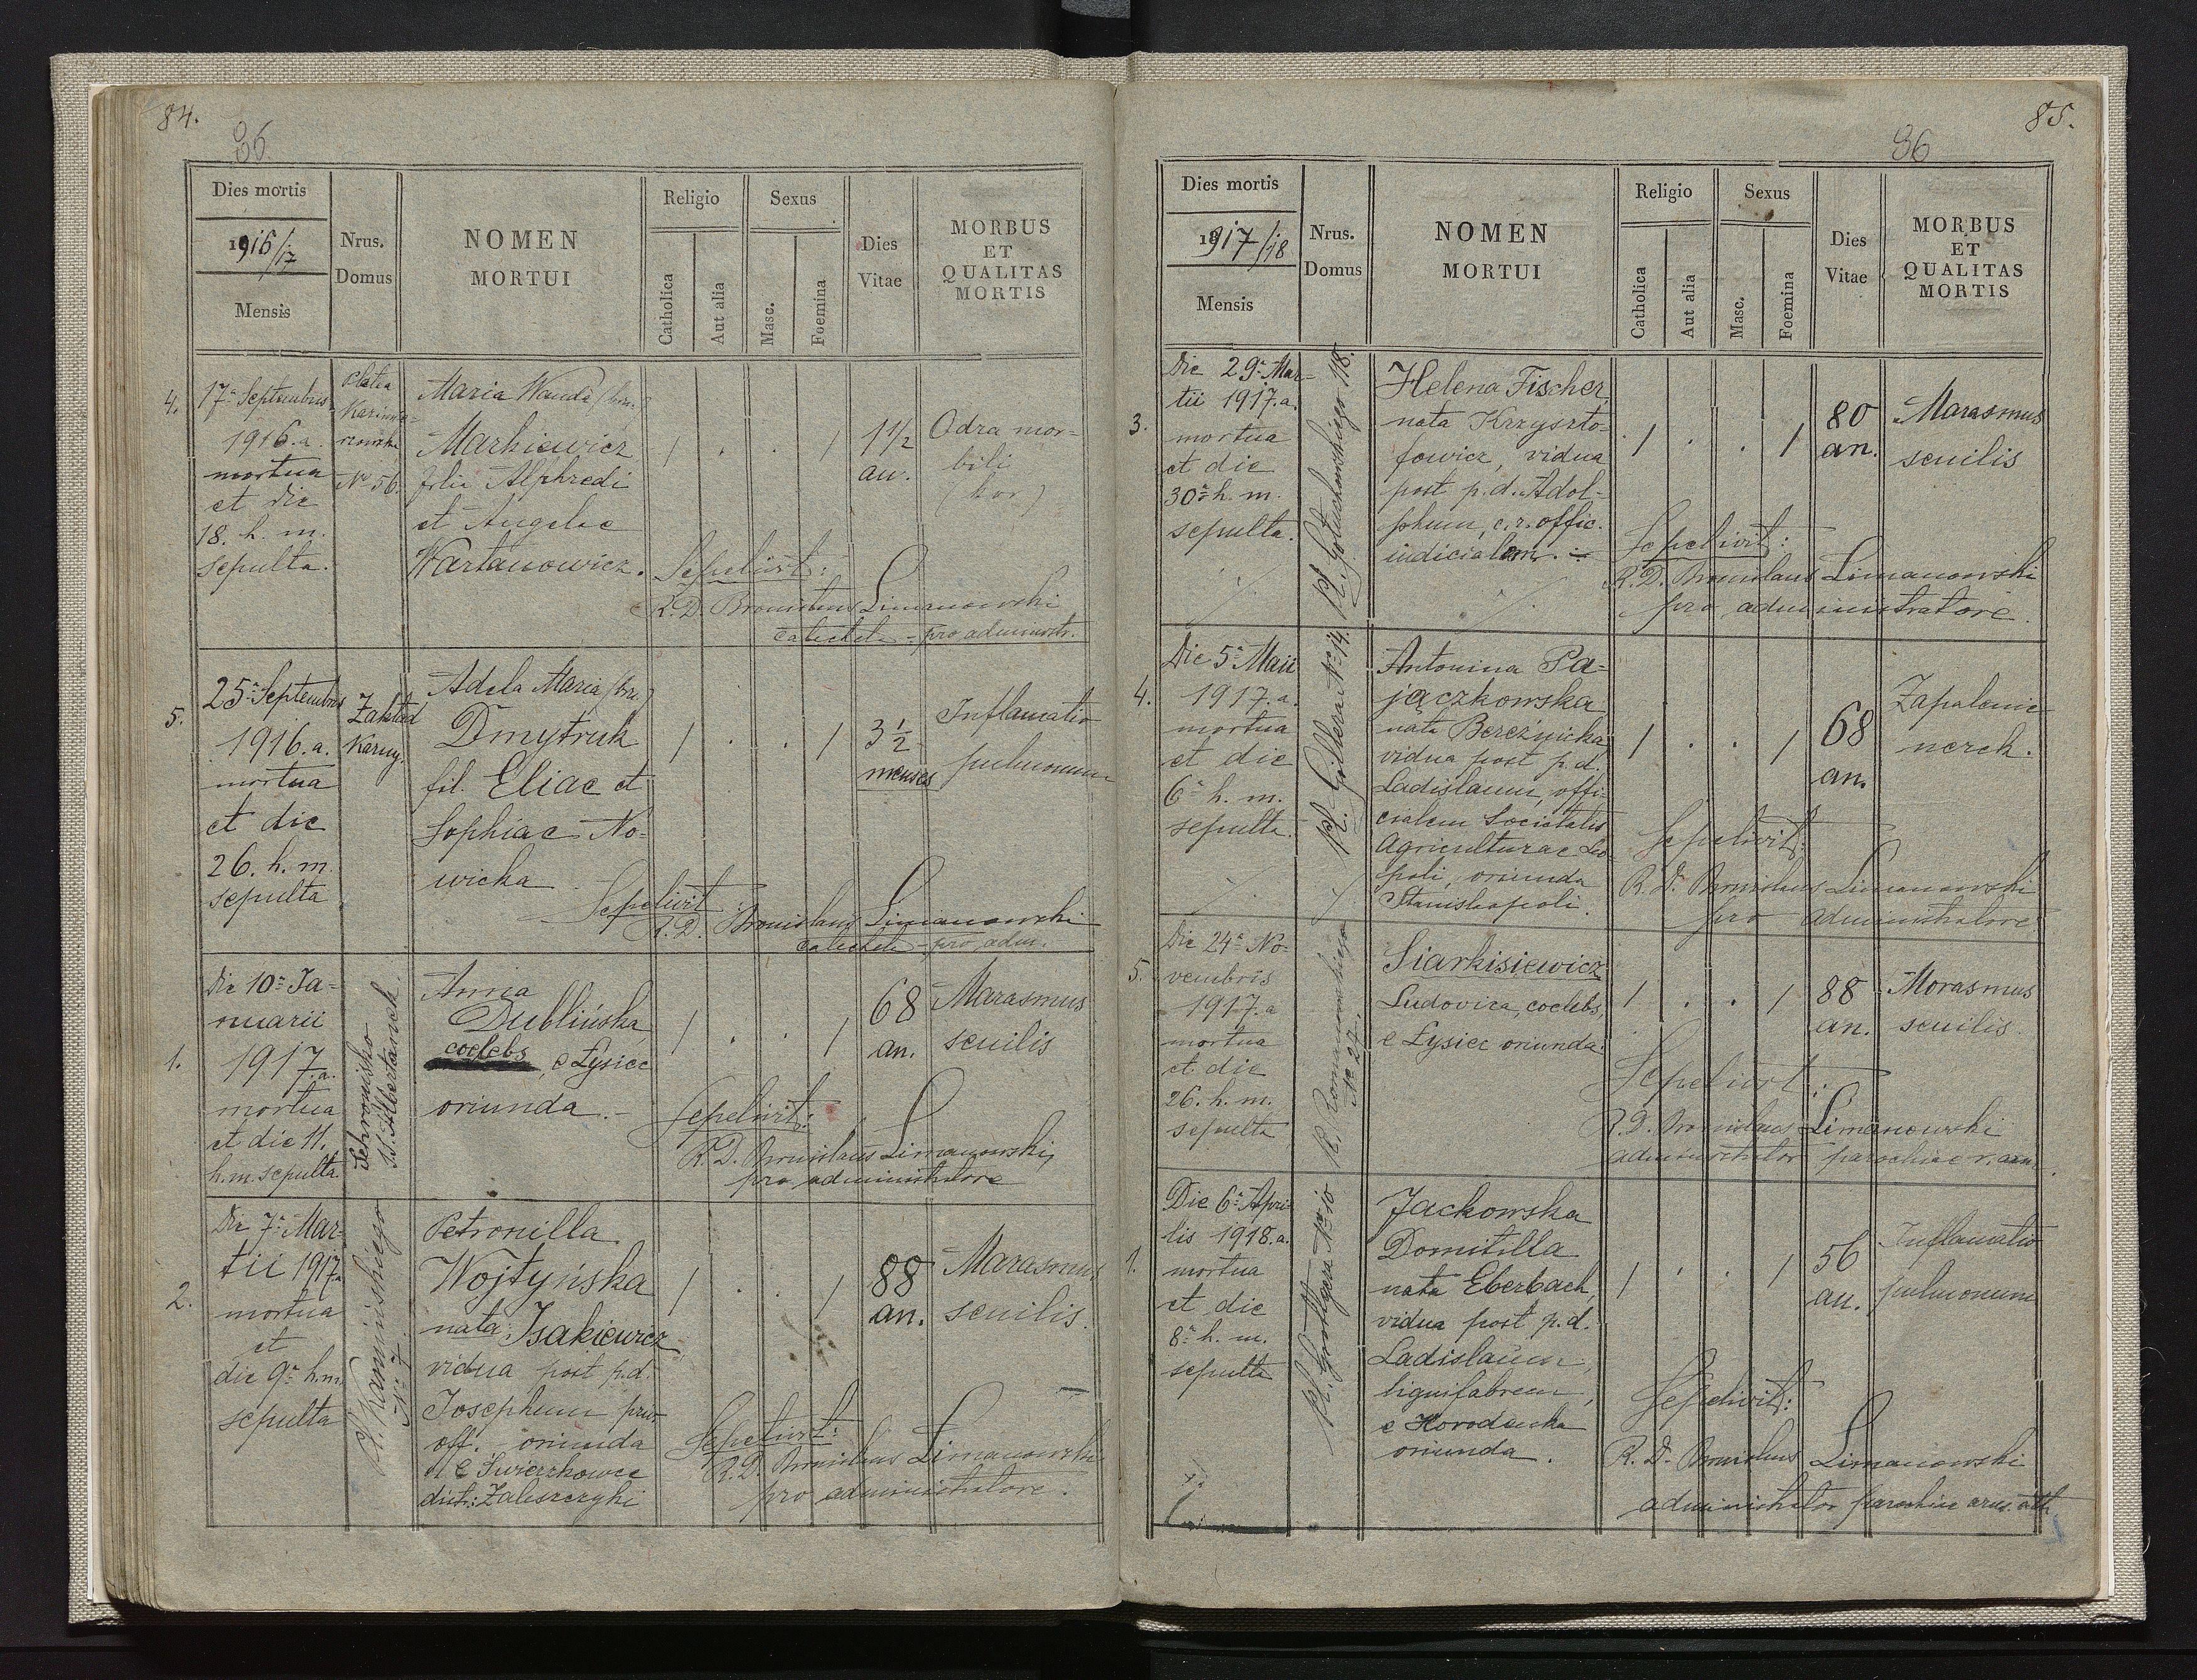 84.
36
Dies mortis
1916/17
Mensis
Nrus.
Domus
NOMEN
MORTUI
Religio
Catholica
Aut alia
Sexus
Masc.
Foemina
Dies
Vitae
MORBUS
ET
QUALITAS
MORTIS
4.
17a Septembris
1916. a.
mortua
et die
18. h. m.
sepulta.
Platea
No 56.
Maria Wanda
Markiewicz
filia Alphredi
et Angelae
Wartanowicz.
1 . . 1
1 1/2
an.
Odra mor-
bili
Sepelivit:
R. D. Bronislaus Limanowski
catecheta - pro administr.
5.
25a Septembris
1916. a.
mortua
et die
26. h. m.
sepulta
Zakład
Karny.
Adela Maria
Dmytruk
fil. Eliae et
Sophiae No-
wicka
1 . . 1
3 1/2
menses
Inflamatio
pulmonum
Sepelivit:
R. D. Bronislaus Limanowski
catecheta - pro adm.
1.
Die 10a Ja-
nuarii
1917. a.
mortua
et die 11.
h. m. sepulta
Schronisko
Anna
Dublińska,
coelebs, e Łysiec
oriunda. -
1 . . 1
68
an.
Marasmus
senilis
Sepelivit:
R. D. Bronislaus Limanowski,
pro administratore
2.
Die 7a Mar-
tii 1917 a
mortua
et
die 9a h. m.
sepulta
Pl. Kamińskiego
No 7.
Petronilla
Wojtyńska
nata Isakiewicz
vidua post p. d.
Josephum priv.
off. oriunda
e Swierzkowce
distr.: Zaleszczyki
1 . . 1
88
an.
Marasmus
senilis.
Sepelivit:
R. D. Bronislaus Limanowski
pro administratore.
85.
36
Dies mortis
1917/18
Mensis
Nrus.
Domus
NOMEN
MORTUI
Religio
Catholica
Aut alia
Sexus
Masc.
Foemina
Dies
Vitae
MORBUS
ET
QUALITAS
MORTIS
3.
Die 29a Mar-
tii 1917. a.
mortua
et die
30a h. m.
sepulta.
Pl. Gołuchowskiego 118.
Helena Fischer,
nata Krzyszto-
fowicz, vidua
post p. d. Adol-
phum, c. r. offic.
iudicialem. -
1 . . 1
80
an.
Marasmus
senilis
Sepelivit:
R. D. Bronislaus Limanowski
pro administratore.
4.
Die 5a Maii
1917. a.
mortua
et die
6a h. m.
sepulta.
Pl. Gillera No 14.
Antonina Pa-
jączkowska
nata Bereźnicka
vidua post p. d.
Ladislaum, offi-
cialem Societatis
Agriculturae Leo-
poli, oriunda
Stanislaopoli.
1 . . 1
68
an.
Zapalenie
nerek.
Sepelivit:
R. D. Bronislaus Limanowski
pro administratore
5.
Die 24a No-
vembris
1917. a
mortua
et die
26. h. m.
sepulta
Pl. Romanowskiego
No 27.
Siarkisiewicz
Ludovica, coelebs,
e Łysiec oriunda.
1 . . 1
88
an.
Morasmus
senilis.
Sepelivit:
R. D. Bronislaus Limanowski
administrator parochiae r. arm.
1.
Die 6a Apri-
lis 1918. a.
mortua
et die
8a h. m.
sepulta
Pl. Grottgera No 10
Jackowska
Domitilla
nata Eberbach,
vidua post p. d.
Ladislaum,
lignifabrem,
e Horodenka
oriunda.
1 . . 1
56
an.
Inflamatio
pulmonum
Sepelivit:
R. D. Bronislaus Limanowski
administrator parochiae arm. cath.